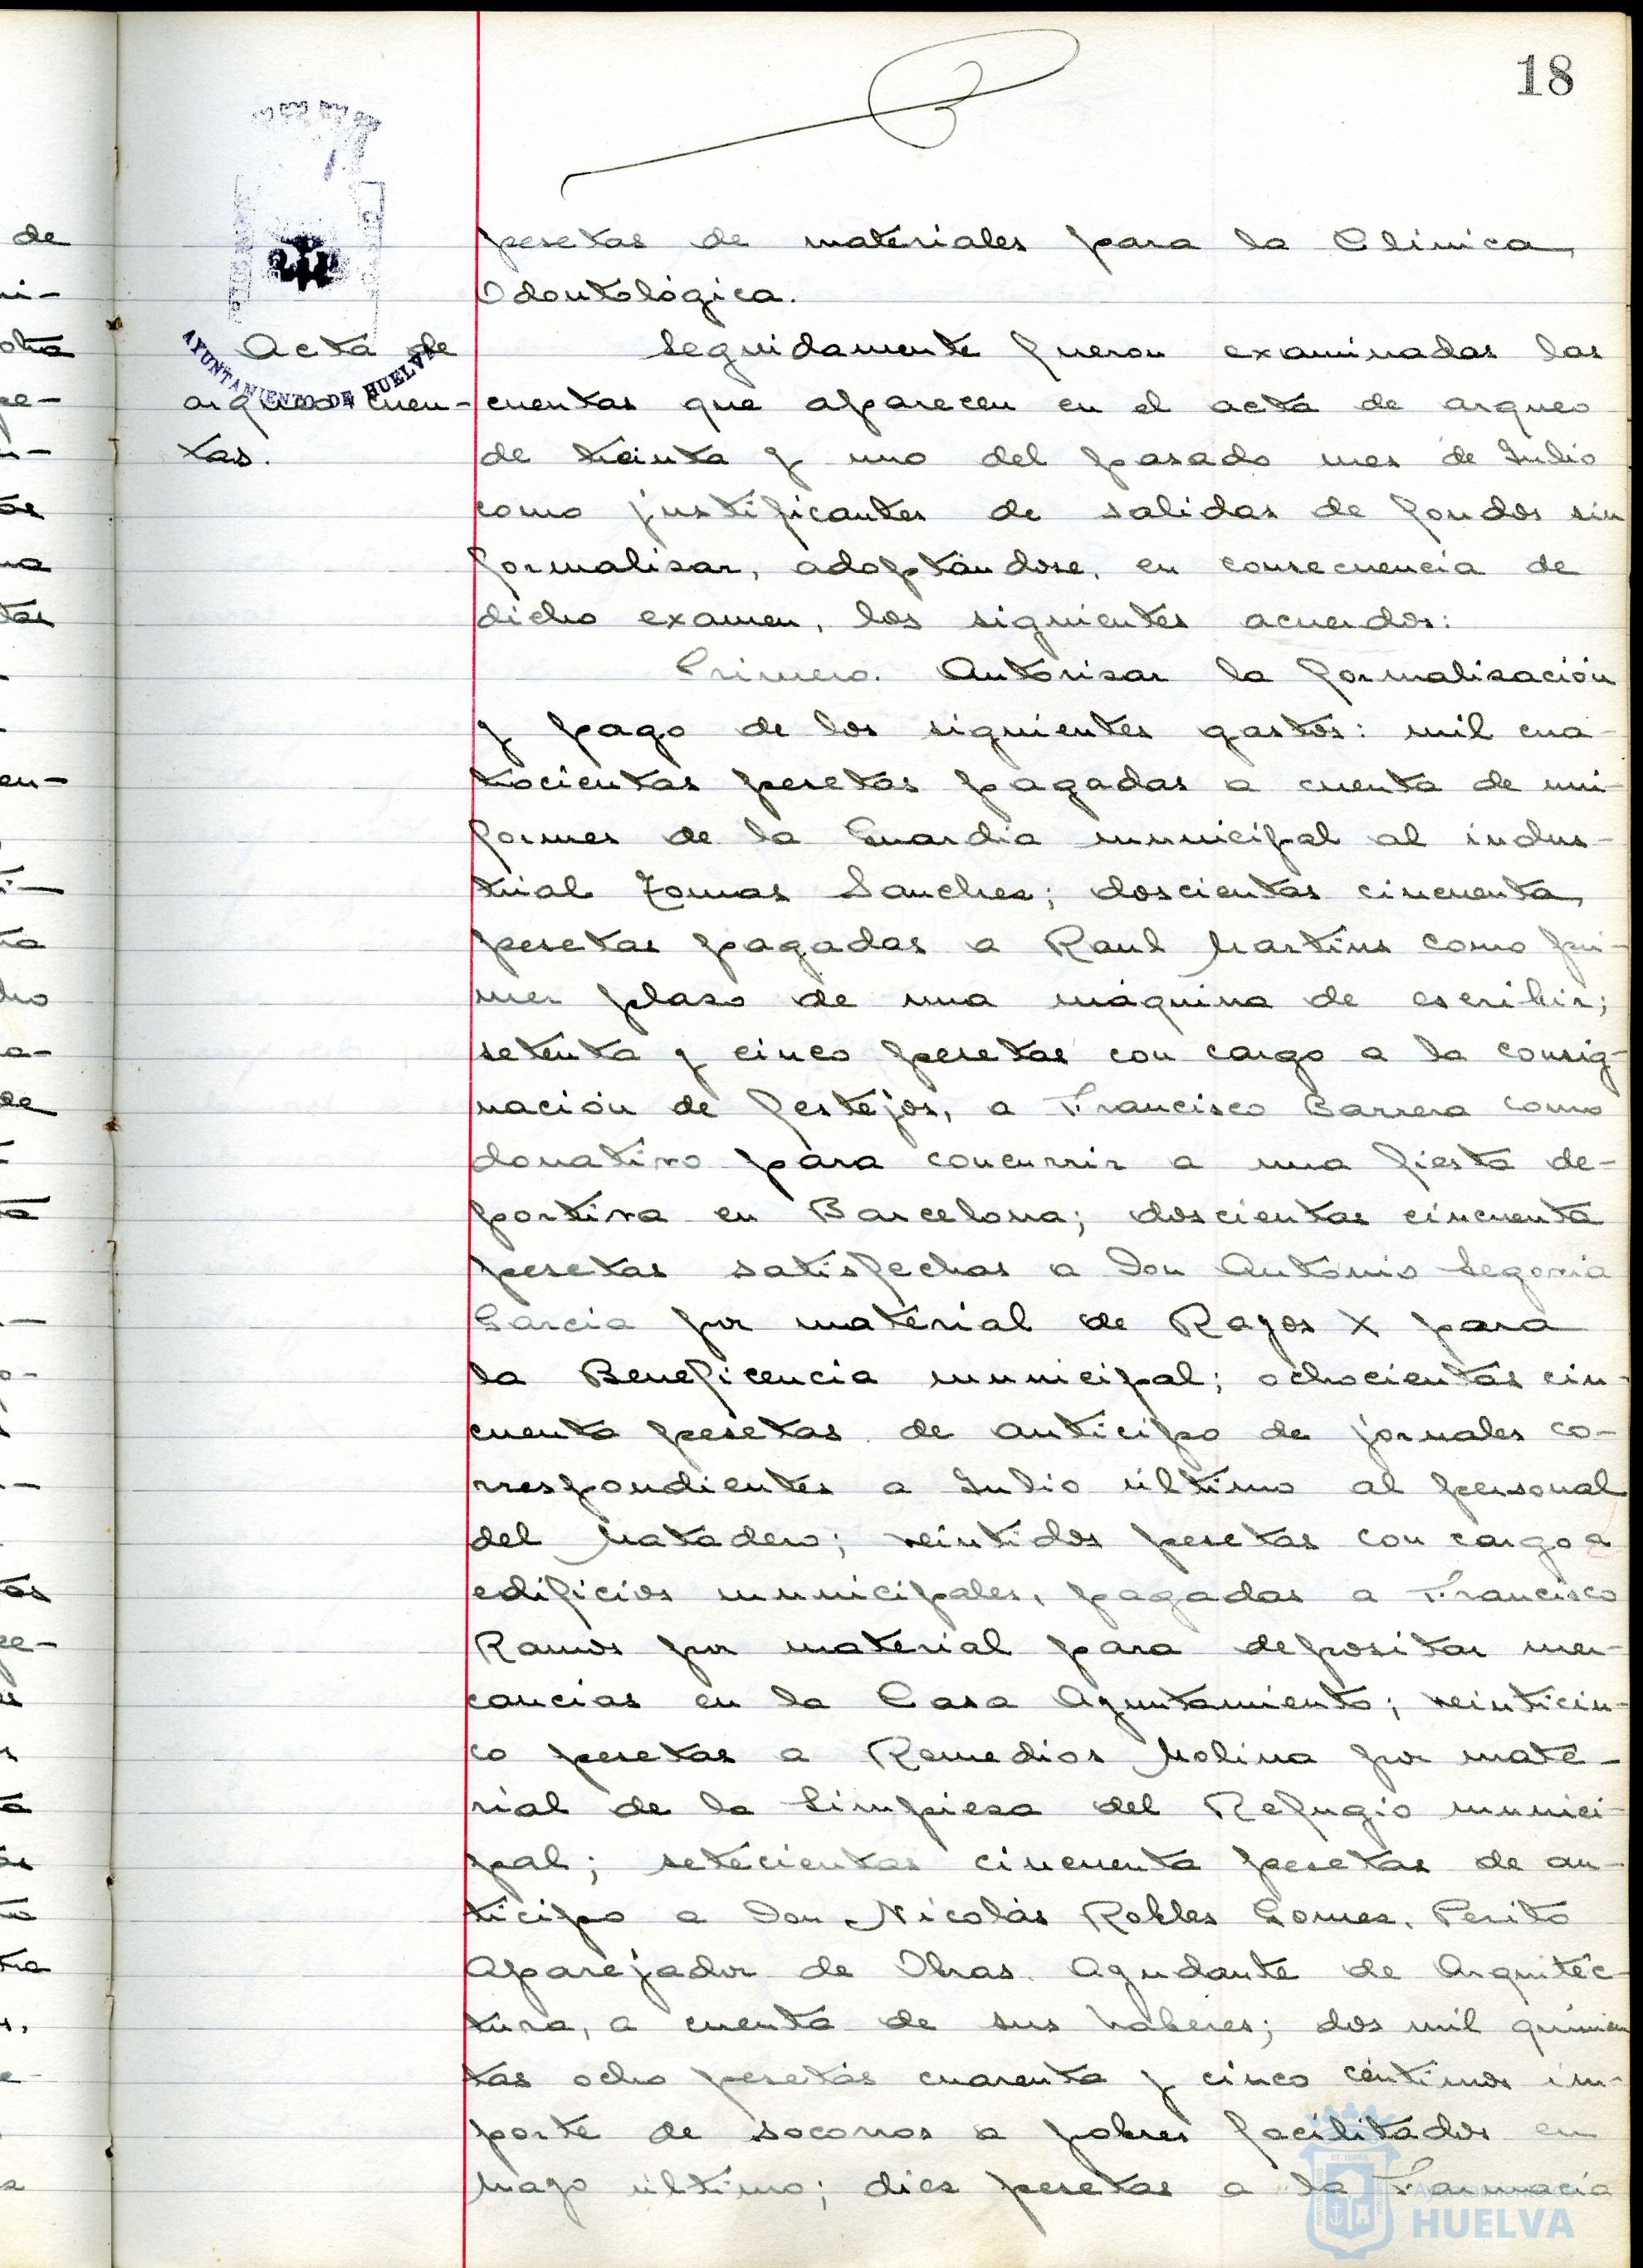 18
pesetas de materiales para la Clinica
Odontológica.
AYUNTAMIENTO DE HUELVA
Acta de
arqueo cuen-
tas.
Seguidamente fueron examinadas las
cuentas que aparecen en el acta de arqueo
de treinta y uno del pasado mes de Julio
como justificantes de salidas de fondos sin
formalizar, adoptándose, en consecuencia de
dicho examen, los siguientes acuerdos:
Primero. Autorizar la formalización
y pago de los siguientes gastos: mil cua-
trocientas pesetas pagadas a cuenta de uni-
formes de la Guardia municipal al indus-
trial Tomas Sanchez; doscientas cincuenta
pesetas pagadas a Raul Martins como pri-
mer plazo de una máquina de escribir;
setenta y cinco pesetas con cargo a la consig-
nación de festejos, a Francisco Barrera como
donativo para concurrir a una fiesta de-
portiva en Barcelona; doscientas cincuenta
pesetas satisfechas a Don Antonio Segovia
Garcia por material de Rayos X para
la Beneficencia municipal; ochocientas cin-
cuenta pesetas de anticipo de jornales co-
rrespondientes a Julio último al personal
del Matadero; veintidos pesetas con cargo a
edificios municipales, pagadas a Francisco
Ramos por material para depositar mer-
cancias en la Casa Ayuntamiento; veinticin-
co pesetas a Remedios Molina por mate-
rial de la limpieza del Refugio munici-
pal; setecientas cincuenta pesetas de an-
ticipo a Don Nicolás Robles Gomez, Perito
Aparejador de Obras, Ayudante de Arquitec-
tura, a cuenta de sus haberes; dos mil quinien
tas ocho pesetas cuarenta y cinco céntimos im-
porte de socorros a pobres facilitados en
Mayo último; diez pesetas a la Farmacia
HUELVA